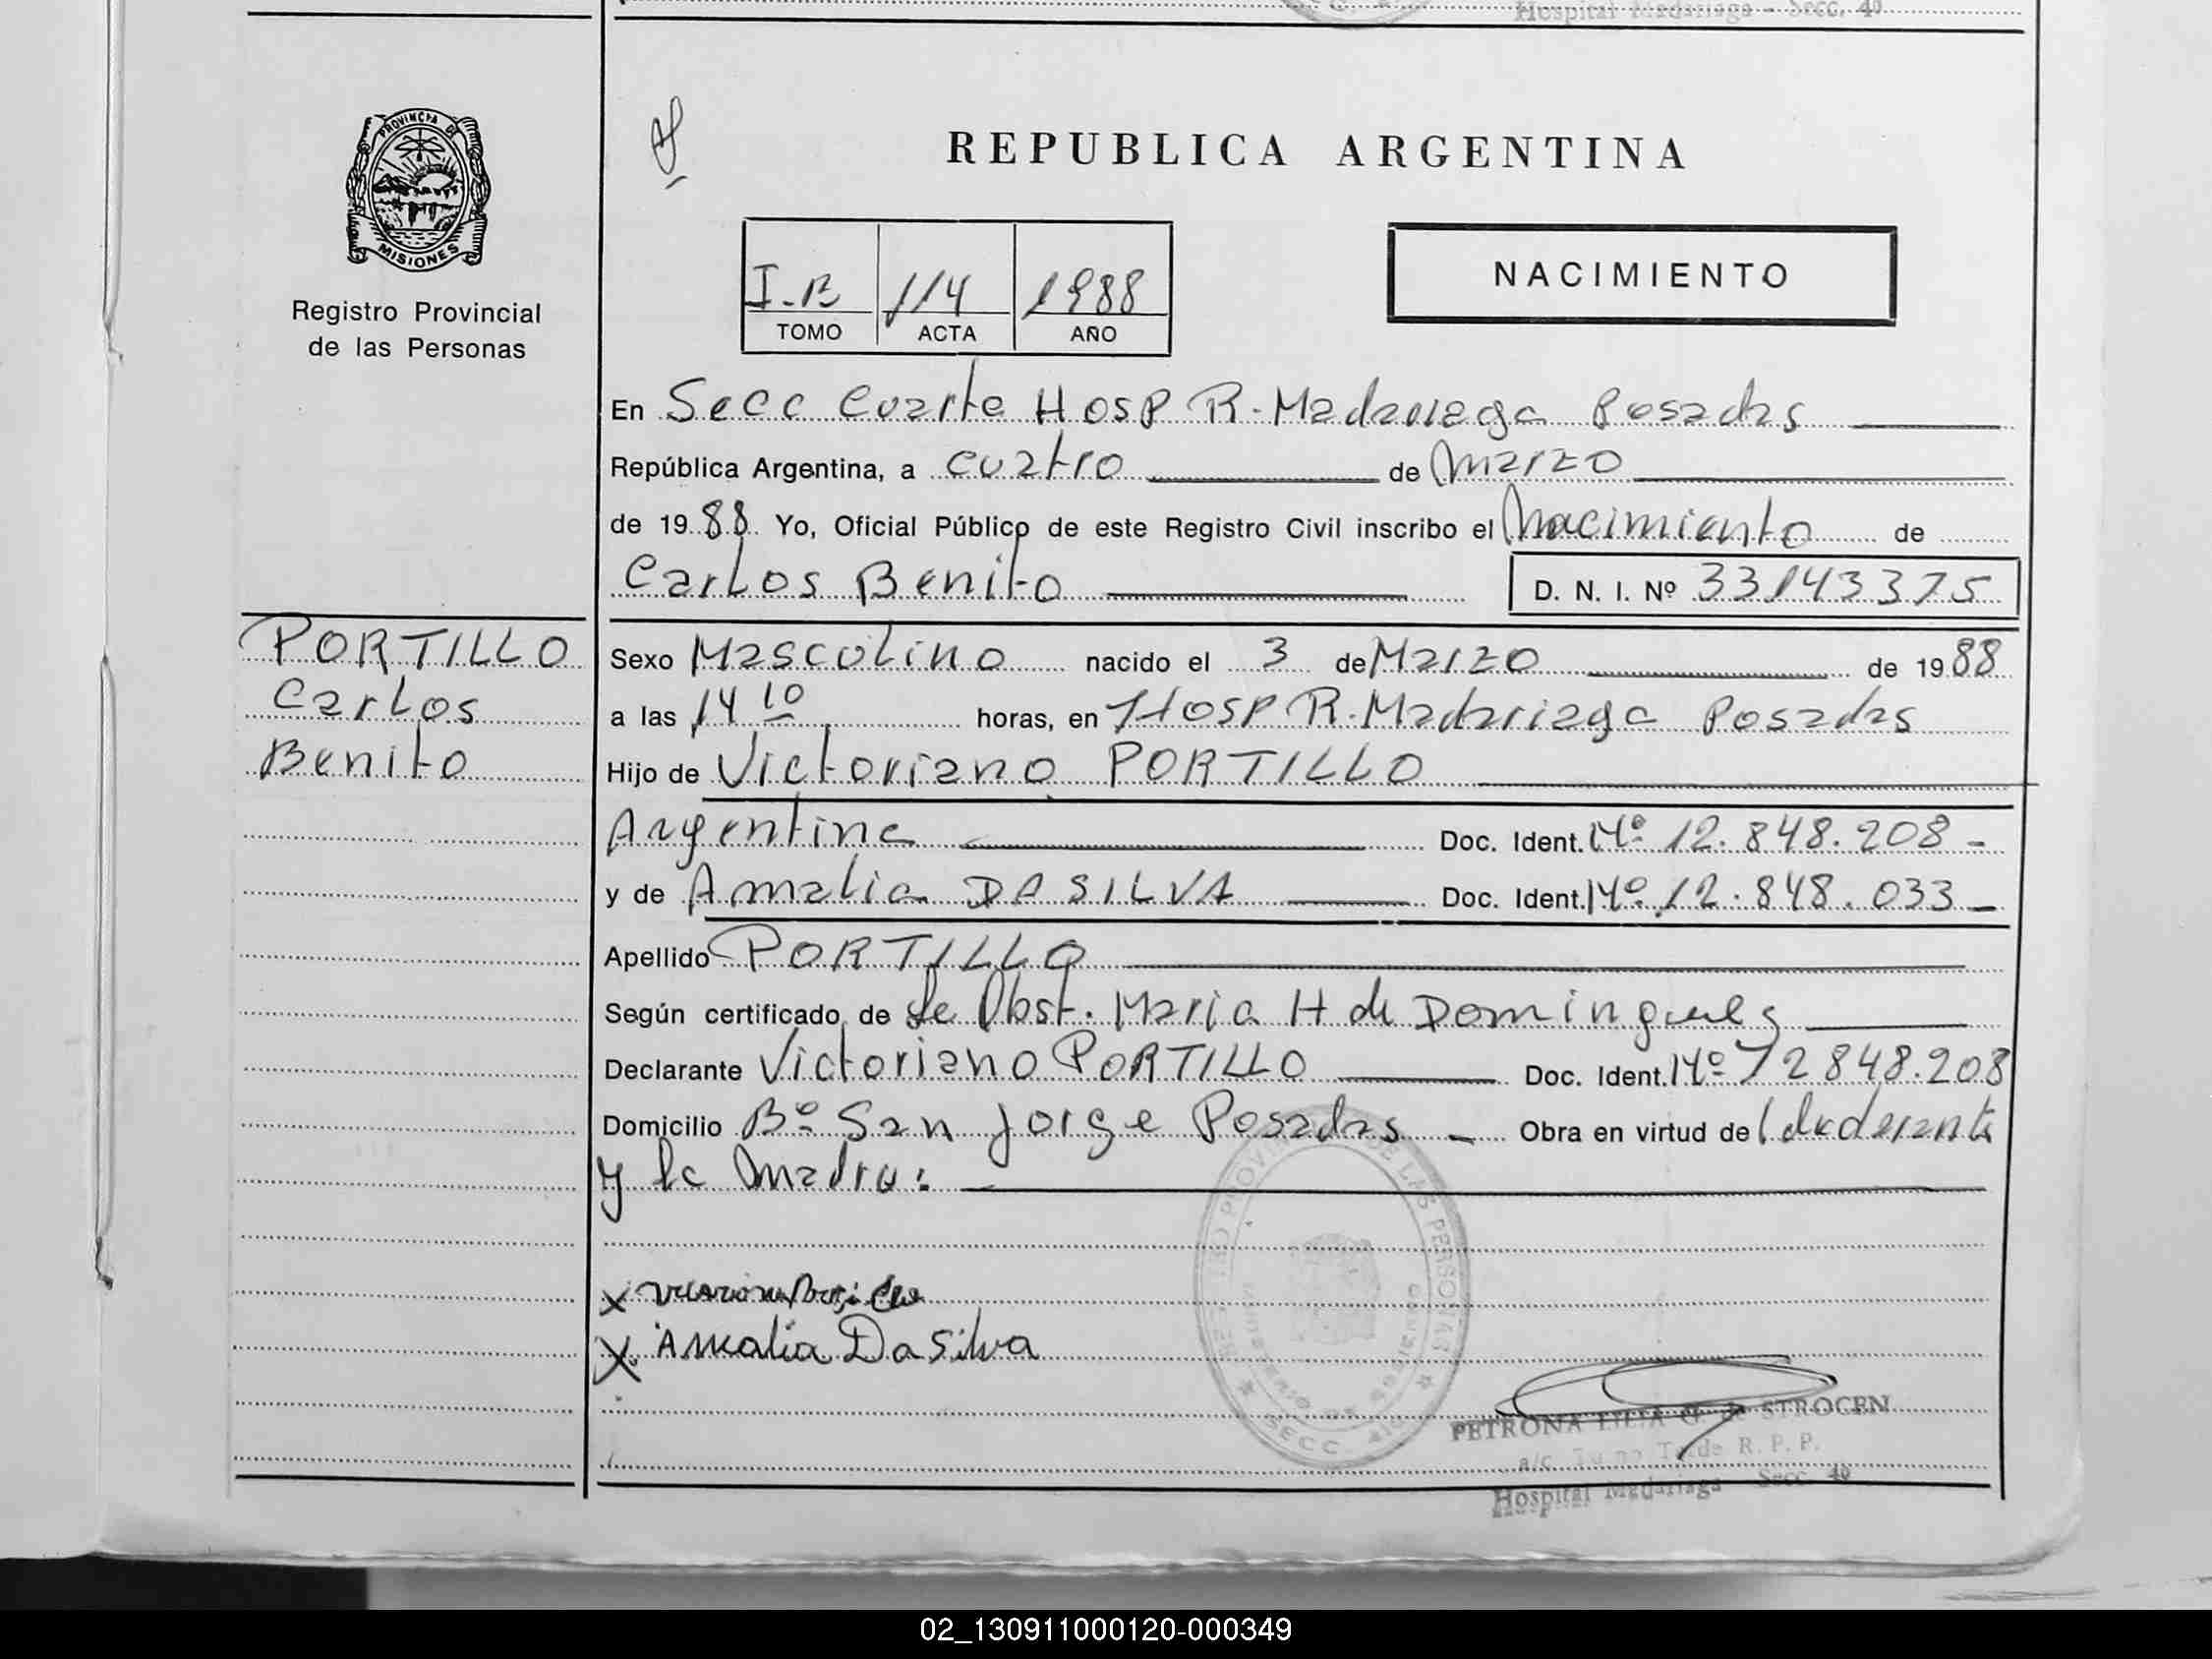 Hospital Madariaga - Secc. 4º
PROVINCIA DE
MISIONES
Registro Provincial
de las Personas
REPUBLICA ARGENTINA
I-B 114 1988
TOMO ACTA AÑO
NACIMIENTO
En Secc Cuarta Hosp R. Madariaga Posadas
República Argentina, a cuatro de Marzo
de 1988 Yo, Oficial Público de este Registro Civil inscribo el Nacimiento de
Carlos Benito D. N. I. Nº 33143375
PORTILLO
Carlos
Benito
Sexo Masculino nacido el 3 de Marzo de 1988
a las 14 10 horas, en Hosp R. Madariaga Posadas
Hijo de Victoriano PORTILLO
Argentina Doc. Ident. Nº 12.848.208-
y de Amalia DA SILVA Doc. Ident. Nº 12.848.033-
Apellido PORTILLO
Según certificado de la Obst. Maria H de Domingues
Declarante Victoriano PORTILLO Doc. Ident. Nº 12848.208
Domicilio Bº San Jorge Posadas - Obra en virtud de
y la Madre:
X
X Amalia Da Silva
PETRONA LILIA de STROCEN
a/c R. P. P.
Hospital Madariaga Secc 4º
02_130911000120-000349